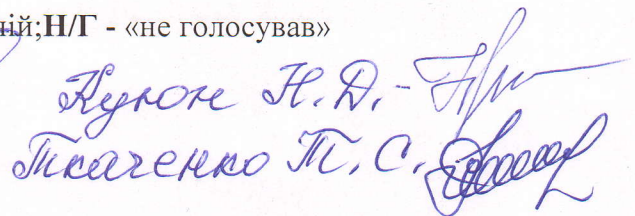 ній;Н/Г - «не голосував»
Куюн Н.Д.-
Ткаченко Т.С.